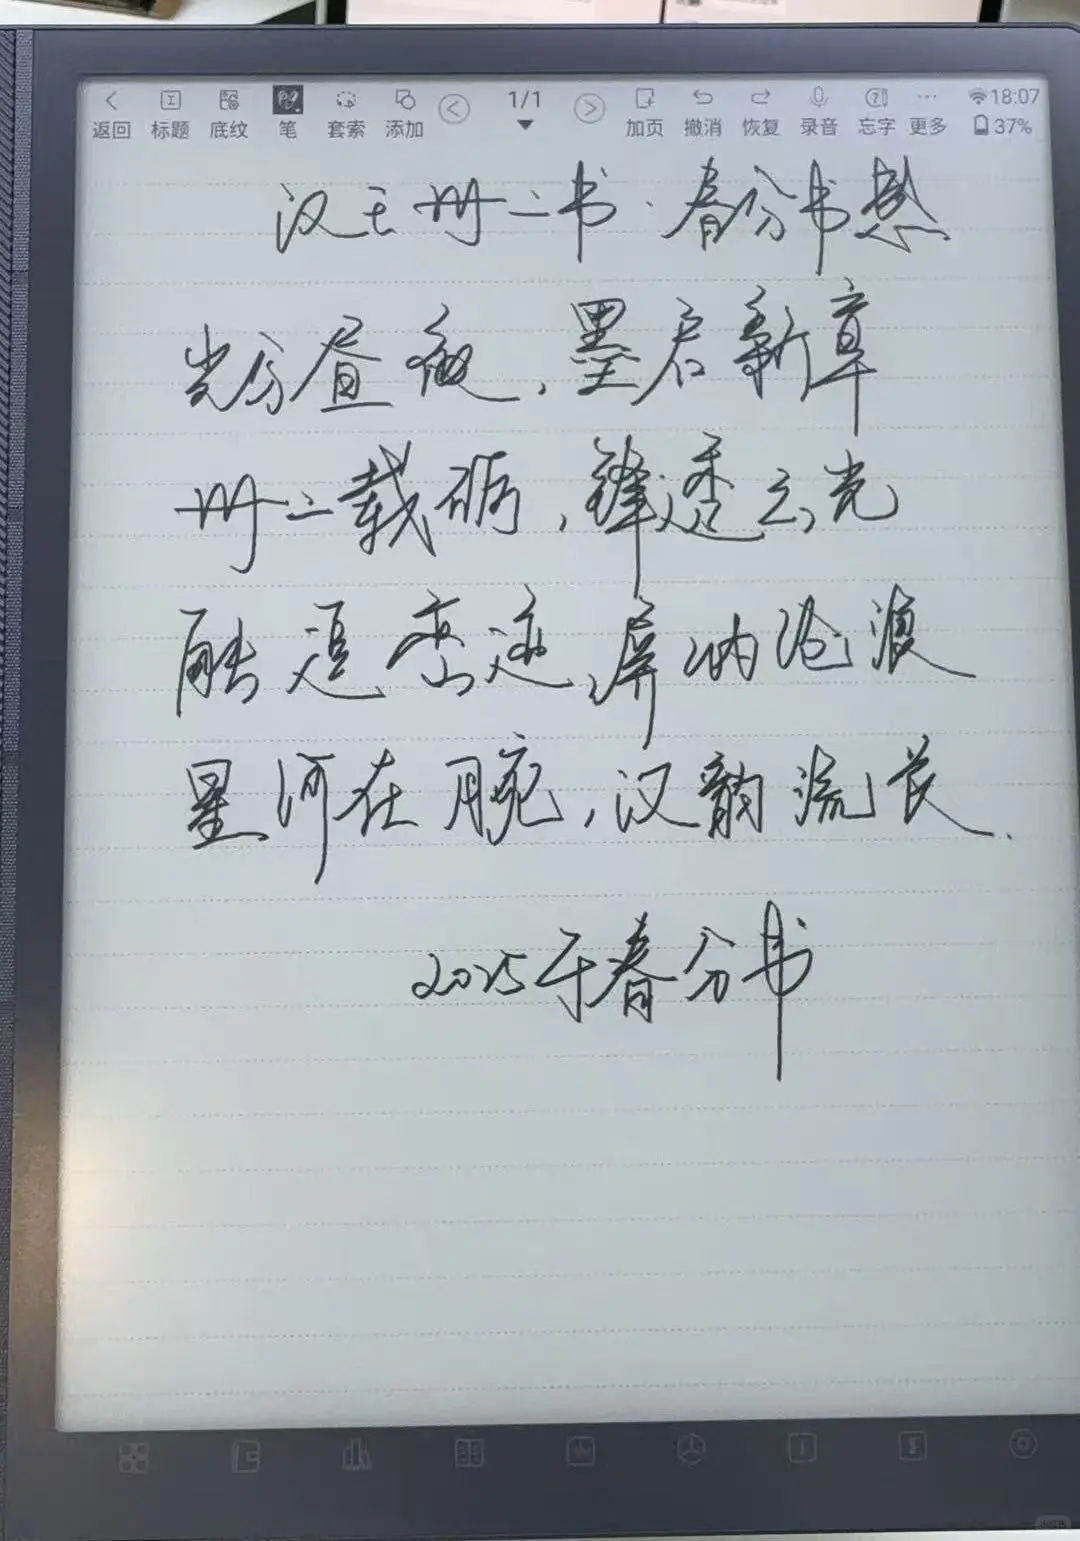 返回 标题 底纹 笔 套索 添加 1/1 加页 撤消 恢复 录音 忘字 更多 18:07 37%
汉王册二书·春分书愁
光分昼夜，墨启新章
册二载砺，锋透云光
融退峦迹，屏纳沧浪
星河在腕，汉韵流长.
2025年春分书